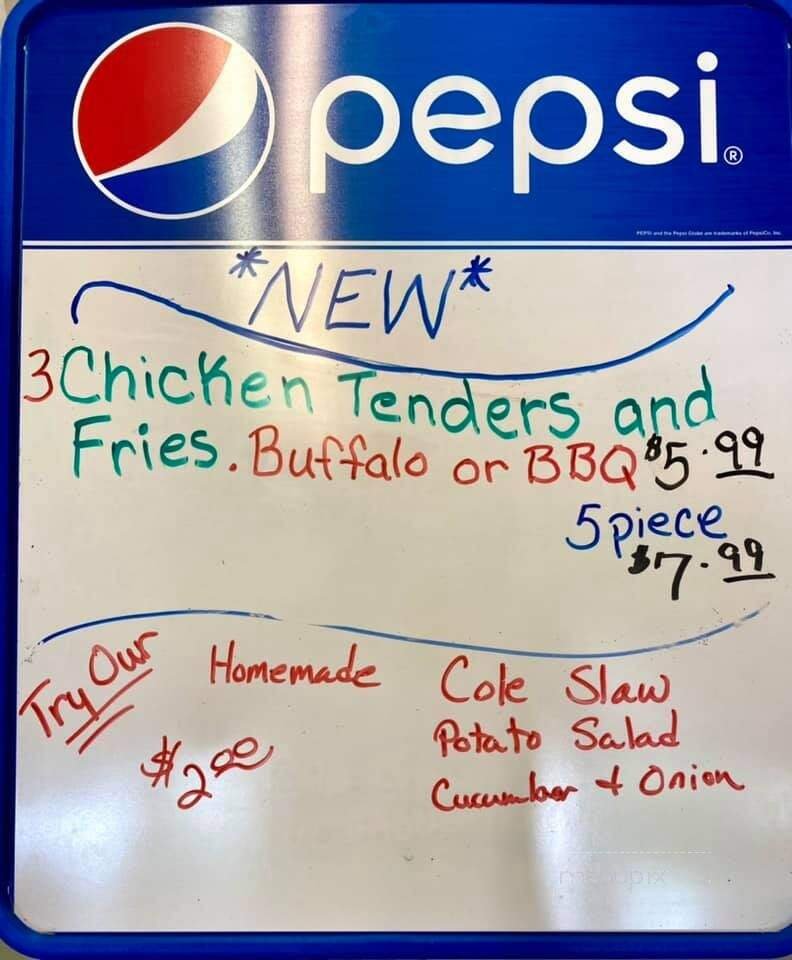 pepsi®
PEPSI and the Pepsi Globe are trademarks of PepsiCo, Inc.
*NEW*
3 Chicken Tenders and
Fries. Buffalo or BBQ $5.99
5 piece
$7.99
Try Our Homemade Cole Slaw
Potato Salad
$2.00
Cucumber + Onion